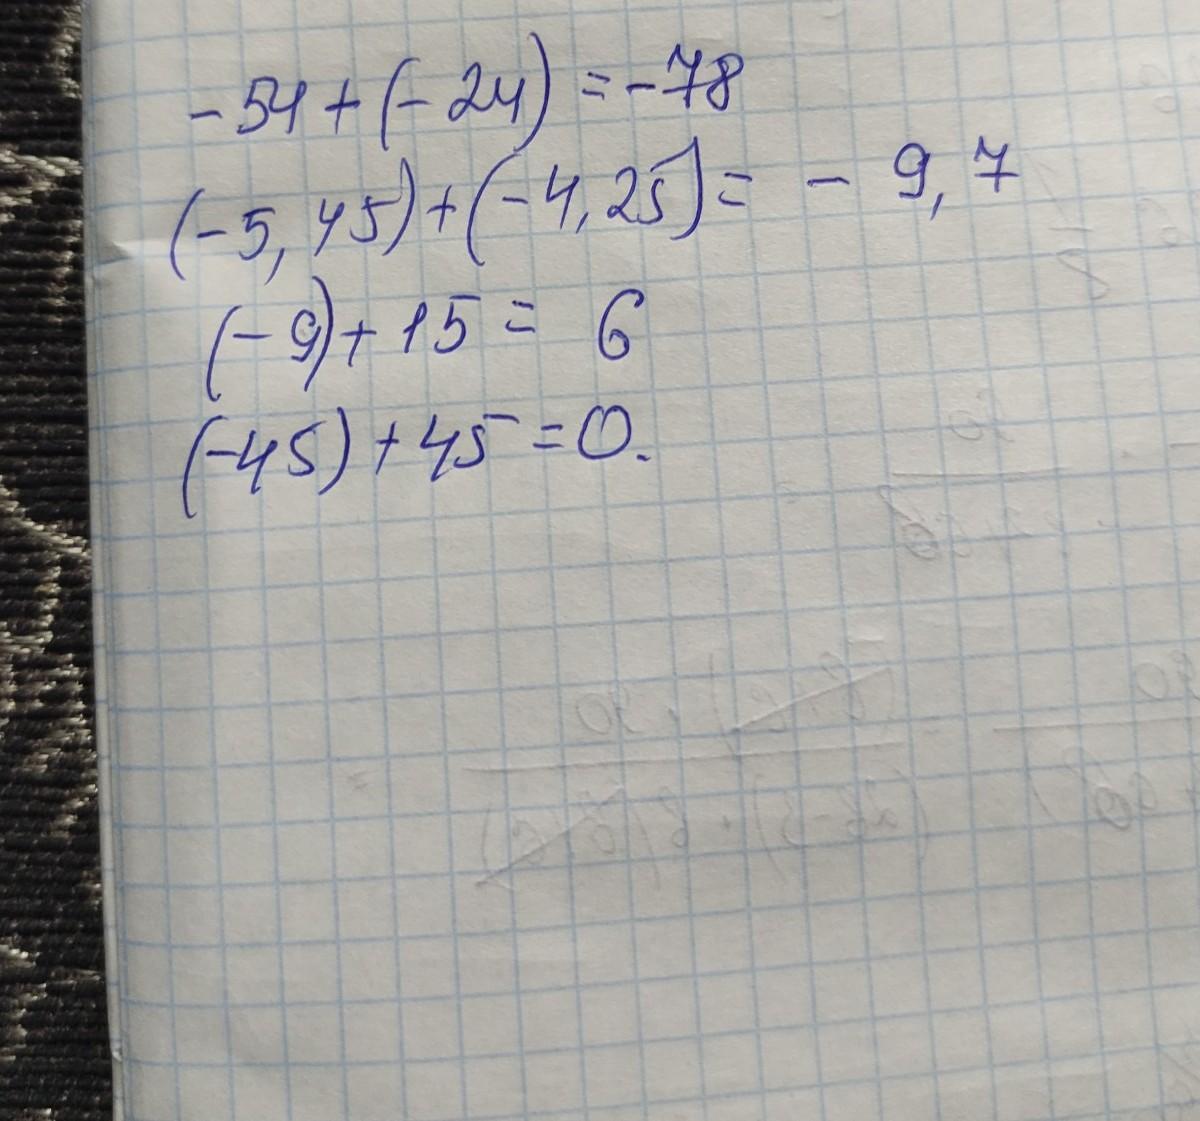 -54+(-24)=-78
(-5,45)+(-4,25)= - 9,7
(-9)+15= 6
(-45)+45=0.